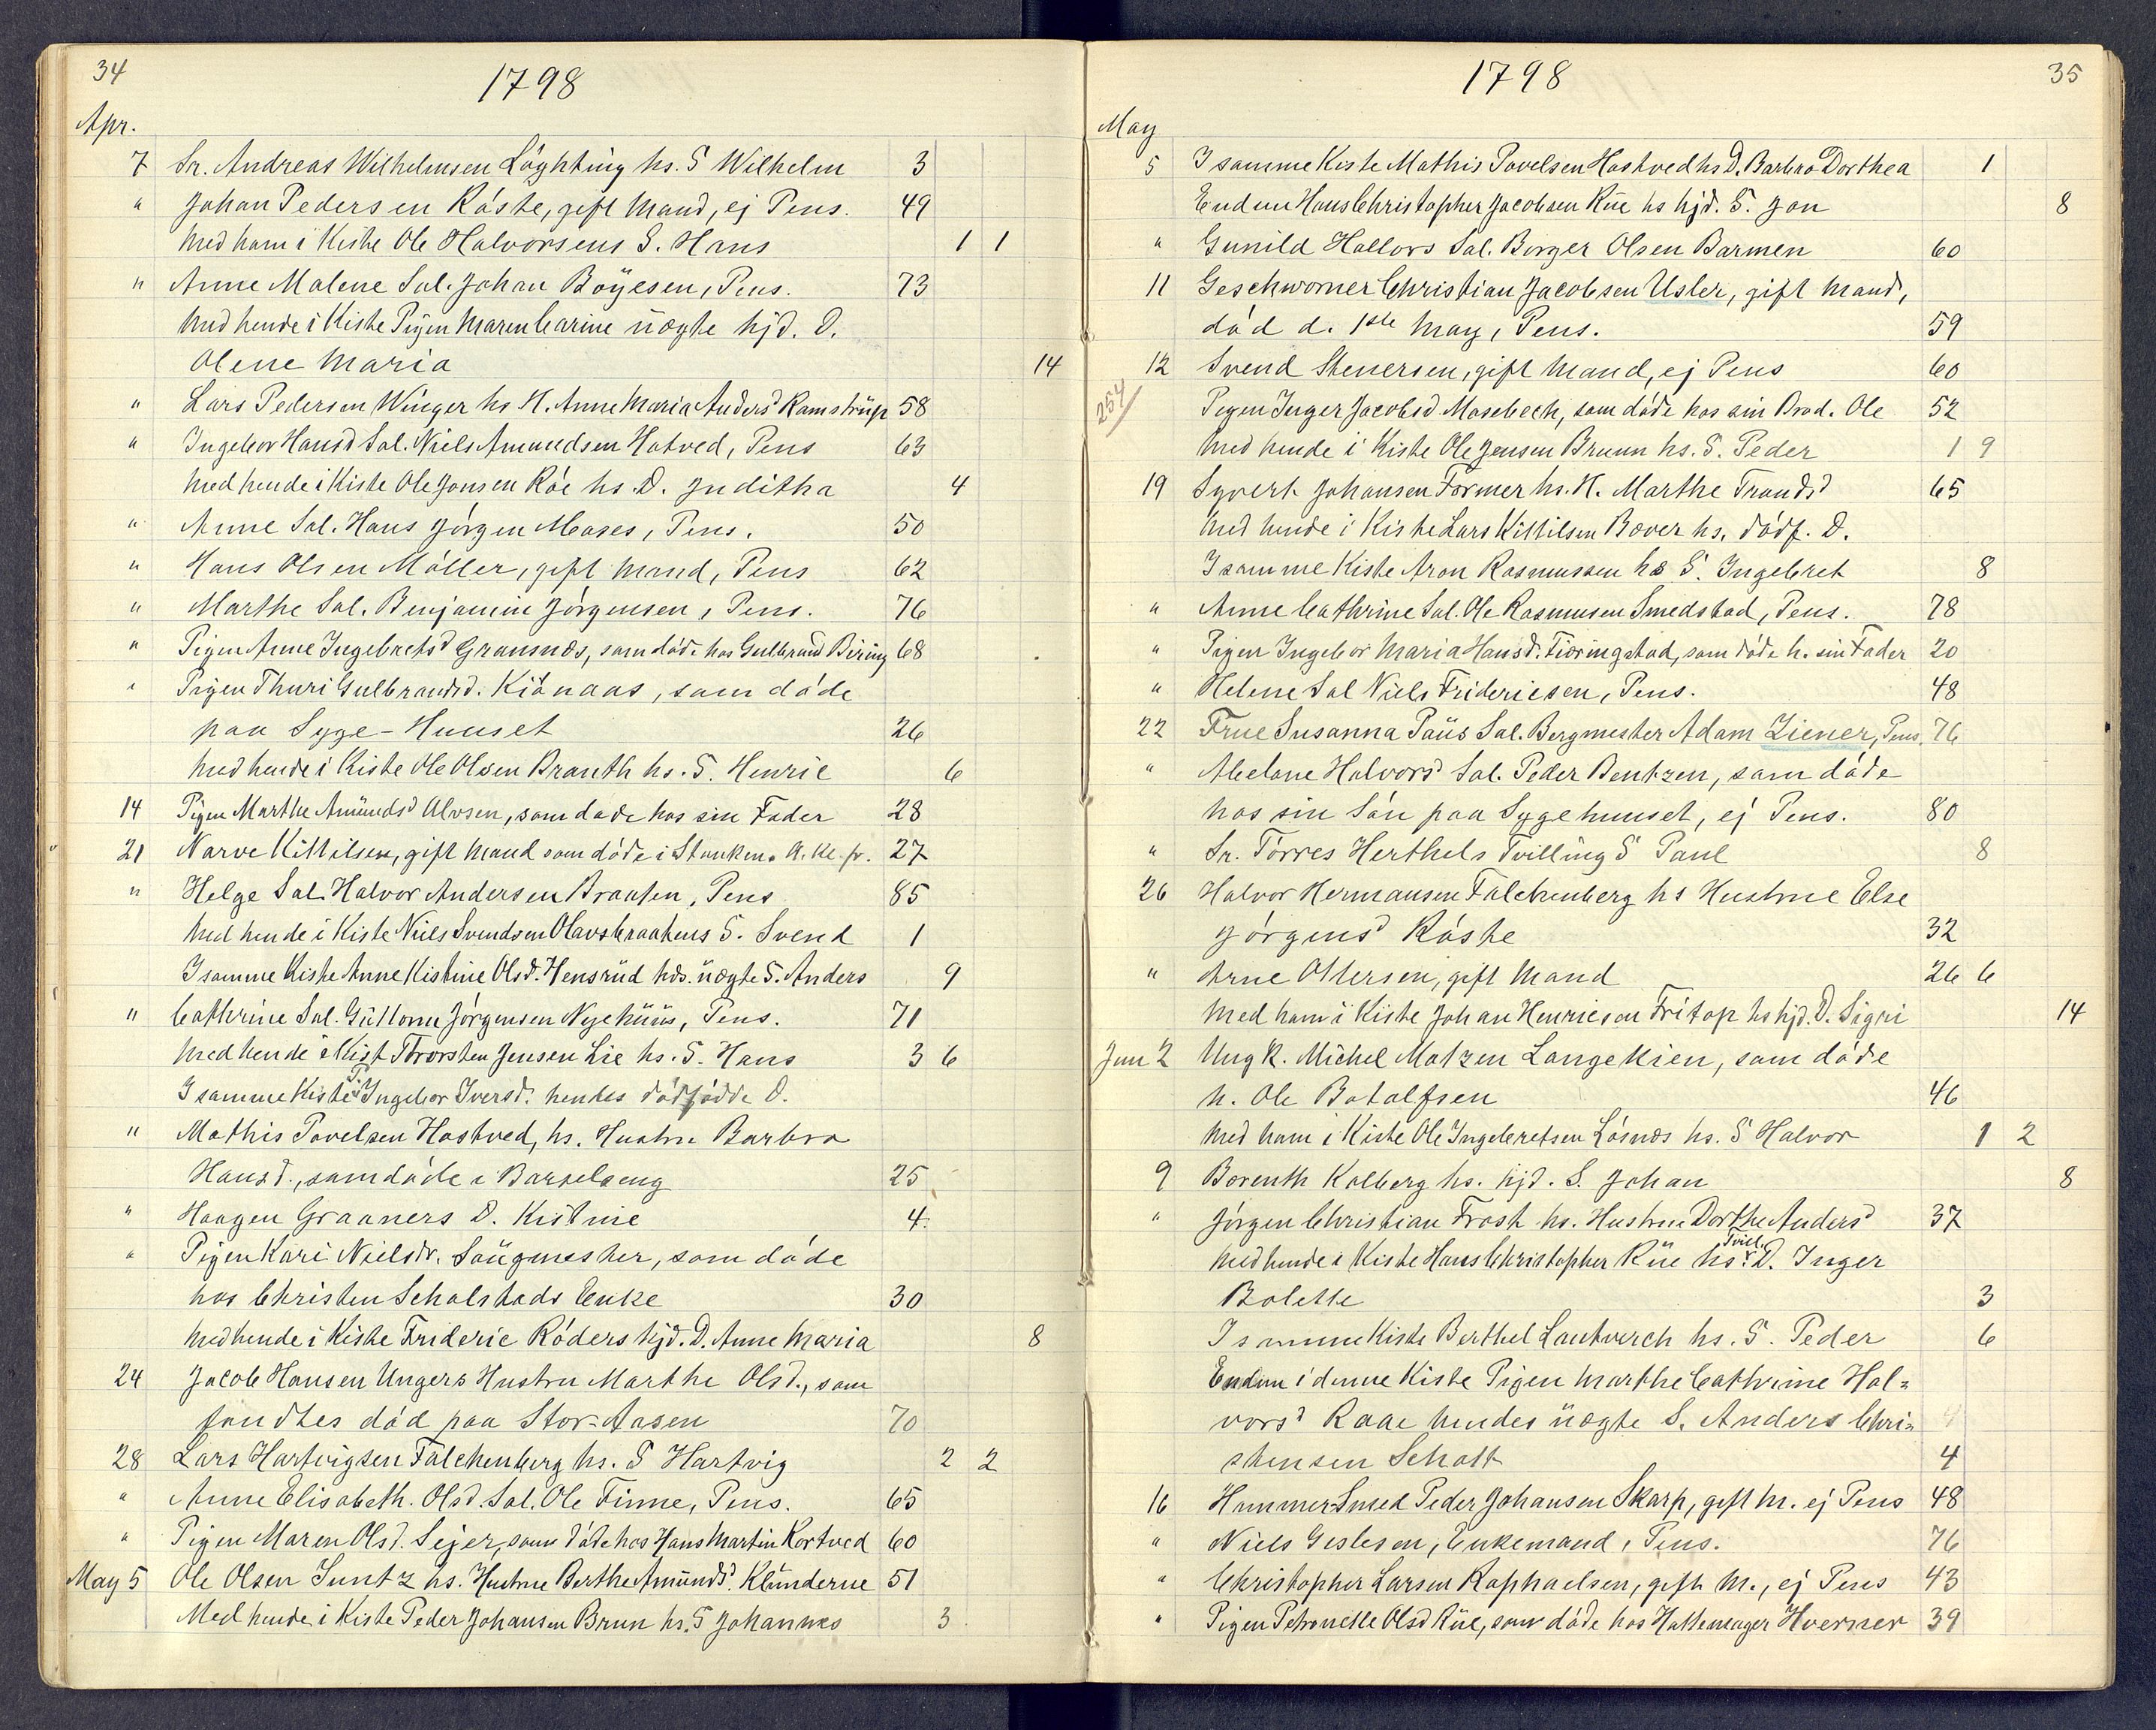 34
1798
Apr.
7 Sr. Andreas Wilhelmsen Löghting hs. S Wilhelm 3
" Johan Pedersen Röste, gift Mand, ej Pens. 49
Med ham i Kiste Ole Halvorsens S. Hans 1 1
" Anne Malene Sal. Johan Böyesen, Pens. 73
Med hende i Kiste Pigen Maren Carine üægte hjd. D.
Olene Maria 14
" Lars Pedersen Winger hs H. Anne Maria Andersd Ramstrüp 58
" Ingebor Hansd Sal. Niels Amundsen Hatved, Pens 63
Med hende i Kiste Ole Jonsen Röe hs. D. Juditha 4
" Anne Sal. Hans Jörgen Moses, Pens. 50
" Hans Olsen Möller, gift Mand, Pens 62
" Marthe Sal. Benjamin Jörgensen, Pens. 76
" Pigen Anne Ingebretsd Gransnæs, som döde hos Gulbrand Biring 68
" Pigen Thuri Gulbrandsd. Kiönaas, som döde
paa Syge-Huuset 26
Med hende i Kiste Ole Olsen Branth hs. S. Henric 6
14 Pigen Marthe Amündsd Alvsen, som döde hos sin Fader 28
" 21 Narve Kittilsen, gift Mand som döde i Stanken. A. Kl. fr. 27
" Helge Sal. Halvor Andersen Braaten, Pens 85
Med hende i Kiste Niels Svendsen Olavsbraatens S. Svend 1
I samme Kiste Anne Kistine Olsd. Hensrüd hds. üægte S. Anders 9
" Cathrine Sal. Güttorm Jörgensen Nyehüüs, Pens. 71
Med hende i Kist Thorsten Jensen Lie hs. S. Hans 3 6
I samme Kiste P. Ingebor Iversd. hendes dödfödde D.
" Mathis Povelsen Hostved, hs. Hustru Barbro
Hansd., som döde i Barselseng 25
" Haagen Graaners D. Kistine 4
" Pigen Kari Nielsdr. Saügmester, som döde
hos Christen Scholstads Enke 30
Med hende i Kiste Frideric Röders hjd. D. Anne Maria 8
24 Jacob Hansen Ungers Hustru Marthe Olsd., som
fandtes död paa Stor-Aasen 70
28 Lars Hartvigsen Falchenberg hs. S Hartvig 2 2
" Anne Elisabeth. Olsd. Sal. Ole Finne, Pens. 65
" Pigen Maren Olsd. Sejer, som döde hos Hans Martin Kortved 60
May 5 Ole Olsen Suntz hs. Hustrue Berthe Amündsd. Klünderne 51
Med hende i Kiste Peder Johansen Brun hs. S Johannes 3
1798
35
May
5 I samme Kiste Mathis Povelsen Hostved hs D. Barbro Dorthea 1
Endnu Hans Christopher Jacobsen Rüe hs hjd. S. Jon 8
" Gunild Hallors Sal. Borger Olsen Barmen 60
11 Geschworner Christian Jacobsen Usler, gift Mand,
död d. 1ste May, Pens. 59
12 Svend Stenersen, gift Mand, ej Pens 60
254/
Pigen Inger Jacobsd Mosebech, som döde hos sin Brod. Ole 52
Med hende i Kiste Ole Jensen Bruun hs. S. Peder 1 9
19 Syvert Johansen Former hs. H. Marthe Trondsd 65
Med hende i Kiste Lars Kittilsen Bæver hs. dödf. D.
I samme Kiste Aron Rasmussen hs S. Ingebret 8
" Anne Cathrine Sal. Ole Rasmusen Smedstad, Pens. 78
" Pigen Ingebor Maria Hansd. Fiøringstad, som döde h. sin Fader 20
" Helene Sal Niels Fridericsen, Pens. 48
22 Frue Susanna Paüs Sal. Bergmester Adam Ziener, Pens. 76
" Abelone Halvorsd Sal. Peder Bentzen, som döde
hos sin Sön paa Sygehuuset, ej Pens. 80
" Sr. Törres Herthels Tvilling S Paul 8
26 Halvor Hermansen Falchenberg hs Hustrue Else
Jörgensd Röste 32
" Arne Ottersen, gift Mand 26 6
Med ham i Kiste Johan Henricsen Fritop hs hjd. D. Sigri 14
Jun 2 Ung K. Michel Matzen Langekien, som döde
h. Ole Botolfsen 46
Med ham i Kiste Ole Ingebretsen Lösnæs hs. S Halvor 1 2
9 Borenth Kolberg hs. hjd. S. Johan 8
" Jörgen Christian Frost hs. Hustrue Dorthe Andersd 37
Med hende i Kiste Hans Christopher Rüe hs. Tvill. D. Inger
Bolette 3
I samme Kiste Berthel Lautverch hs. S. Peder 6
Endnu i denne Kiste Pigen Marthe Cathrine Hal=
vorsd Raae hendes üægte S. Anders Chri=
stensen Schott 4
16 Hammer Smed Peder Johansen Skarp, gift M. ej Pens 48
" Niels Geslesen, Enkemand, Pens. 76
" Christopher Larsen Raphaelsen, gift M., ej Pens 43
" Pigen Petronelle Olsd Rüe, som döde hos Hattemager Hverner 39